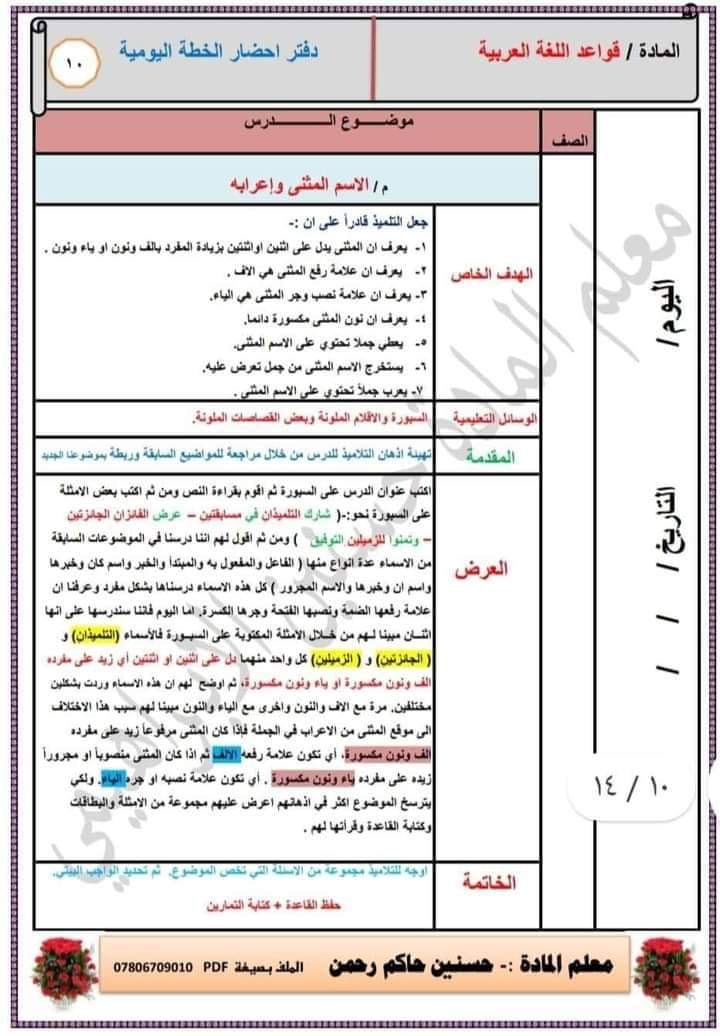 المادة / قواعد اللغة العربية
دفتر احضار الخطة اليومية
١٠
الصف
موضـــوع الـــــــــدرس
م / الاسم المثنى وإعرابه
اليوم /
التاريخ / / /
الهدف الخاص
جعل التلميذ قادراً على ان :-
١- يعرف ان المثنى يدل على اثنين او اثنتين بزيادة المفرد بالف ونون او ياء ونون .
٢- يعرف ان علامة رفع المثنى هي الاف .
٣- يعرف ان علامة نصب وجر المثنى هي الياء.
٤- يعرف ان نون المثنى مكسورة دائما.
٥- يعطي جملا تحتوي على الاسم المثنى.
٦- يستخرج الاسم المثنى من جمل تعرض عليه.
٧- يعرب جملاً تحتوي على الاسم المثنى .
الوسائل التعليمية
السبورة والاقلام الملونة وبعض القصاصات الملونة.
المقدمة
تهيئة اذهان التلاميذ للدرس من خلال مراجعة للمواضيع السابقة وربطة بموضوعنا الجديد
العرض
اكتب عنوان الدرس على السبورة ثم اقوم بقراءة النص ومن ثم اكتب بعض الامثلة
على السبورة نحو:-( شارك التلميذان في مسابقتين – عرض الفائزان الجائزتين
– وتمنوا للزميلين التوفيق ) ومن ثم اقول لهم اننا درسنا في الموضوعات السابقة
من الاسماء عدة انواع منها ( الفاعل والمفعول به والمبتدأ والخبر واسم كان وخبرها
واسم ان وخبرها والاسم المجرور ) كل هذه الاسماء درسناها بشكل مفرد وعرفنا ان
علامة رفعها الضمة ونصبها الفتحة وجرها الكسرة. اما اليوم فاننا سندرسها على انها
اثنان مبينا لهم من خلال الامثلة المكتوبة على السبورة فالأسماء (التلميذان) و
( الجائزتين) و ( الزميلين) كل واحد منهما دل على اثنين او اثنتين أي زيد على مفرده
الف ونون مكسورة او ياء ونون مكسورة، ثم اوضح لهم ان هذه الاسماء وردت بشكلين
مختلفين. مرة مع الاف والنون واخرى مع الياء والنون مبينا لهم سبب هذا الاختلاف
الى موقع المثنى من الاعراب في الجملة فإذا كان المثنى مرفوعاً زيد على مفرده
الف ونون مكسورة، أي تكون علامة رفعه الالف ثم اذا كان المثنى منصوباً او مجروراً
زيده على مفرده ياء ونون مكسورة . أي تكون علامة نصبه او جره الياء. ولكي
يترسخ الموضوع اكثر في اذهانهم اعرض عليهم مجموعة من الامثلة والبطاقات
وكتابة القاعدة وقرأتها لهم .
١٠ / ١٤
الخاتمة
اوجه للتلاميذ مجموعة من الاسئلة التي تخص الموضوع. ثم تحديد الواجب البيتي.
حفظ القاعدة + كتابة التمارين
معلم المادة حسنين الابراهيمي
معلم المادة :- حسنين حاكم رحمن
الملف بصيغة PDF 07806709010